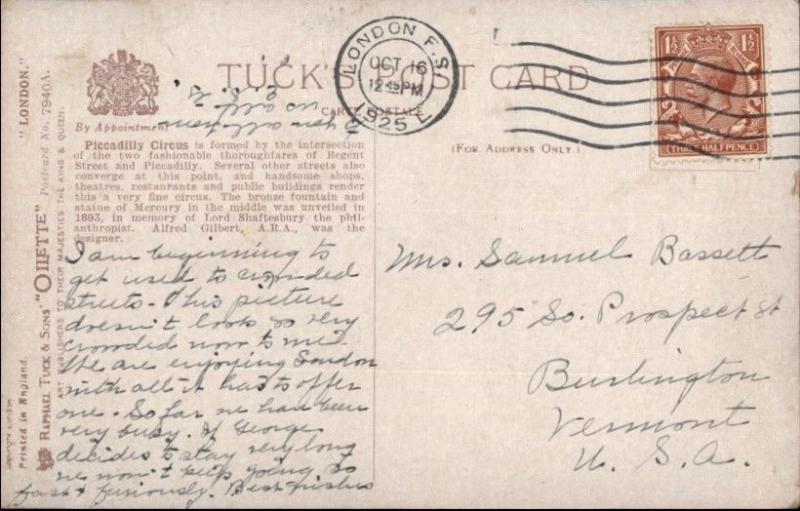 TUCK'S POST CARD
CARTE POSTALE
(FOR ADDRESS ONLY.)
By Appointment
Piccadilly Circus is formed by the intersection
of the two fashionable thoroughfares of Regent
Street and Piccadilly. Several other streets also
converge at this point, and handsome shops,
theatres, restaurants and public buildings render
this a very fine circus. The bronze fountain and
statue of Mercury in the middle was unveiled in
1893, in memory of Lord Shaftesbury the phil-
anthropist. Alfred Gilbert, A.R.A., was the
designer.
I am beginning to
get used to crowded
streets - This picture
doesn't look so very
crowded now to me.
We are enjoying London
with all it has to offer
one. So far we have been
very busy. If George
decides to stay very long
we won't keep going so
fast & furiously. Best wishes
LONDON F.S.
OCT 16
12 45 PM
1925
1½ 1½
THREE HALFPENCE
Mrs. Samuel Bassett
295 So. Prospect St
Burlington
Vermont
U. S. A.
"LONDON."
Postcard No. 7940A.
RAPHAEL TUCK & SONS' "OILETTE"
ART PUBLISHERS TO THEIR MAJESTIES THE KING & QUEEN.
Printed in England.